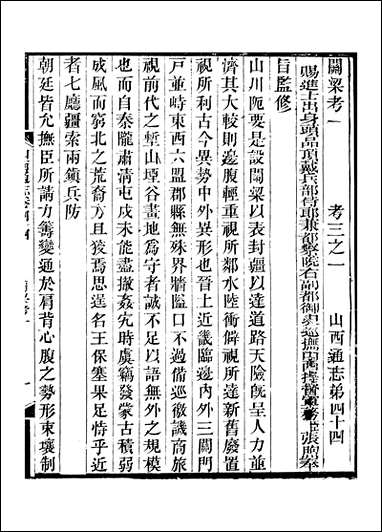 關梁考一　考三之一　山西通志第四十四
賜進士出身頭品頂戴兵部侍郎兼都察院右副都御史巡撫山西提督軍務臣張煦奉
旨監修
山川阨要是設關梁以表封疆以達道路天險旣呈人力並
濟其大較則邊腹輕重視所鄰水陸衝僻視所達新舊廢置
視所利古今異勢中外異形也晉上近畿臨邊內外三關門
戸並峙東西六盟郡縣無殊界牆隘口不過備巡徼譏商旅
視前代之塹山堙谷畫地為守者誠不足以語無外之規模
也而自秦隴肅清屯戍未能盡撤姦宄時虞竊發蒙古積弱
成風而窮北之荒裔方且狡焉思逞名王保塞果足恃乎近
者七廳疆索兩鎮兵防
朝廷皆允撫臣所請力籌變通於肩背心腹之勢形束壤制